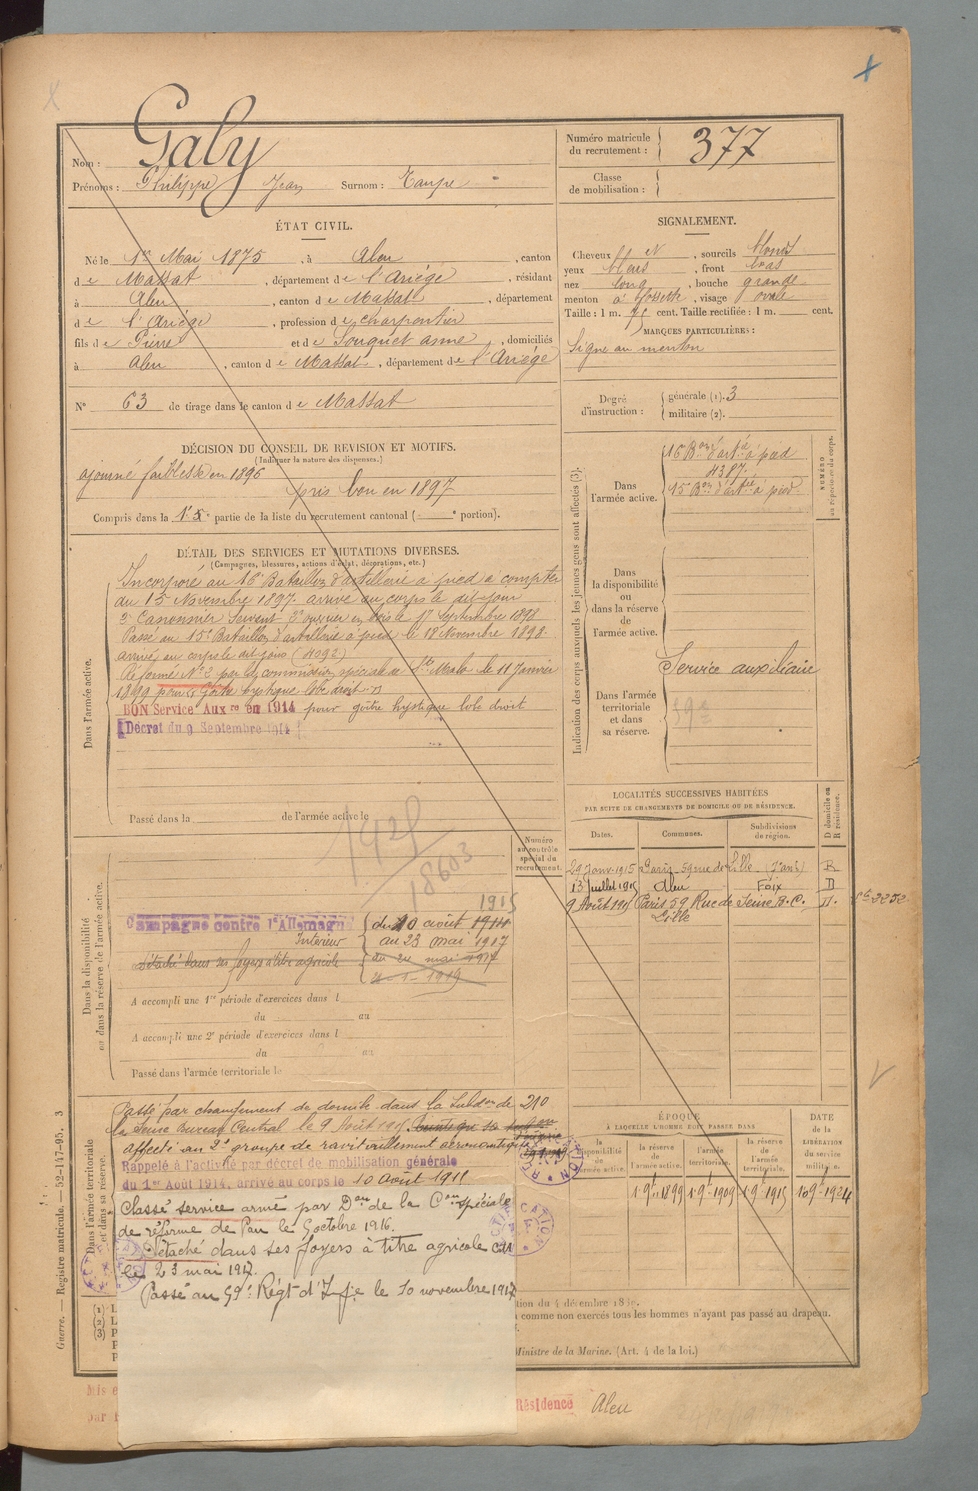 Galy
Nom :
Prénoms : Philippe Jean Surnom : Taupe
Numéro matricule du recrutement : 377
Classe de mobilisation :
ÉTAT CIVIL.
Né le 1er Mai 1875, à Aleu, canton
de Massat, département de l'Ariège, résidant
à Aleu, canton de Massat, département
de l'Ariège, profession de charpentier
fils de Pierre et de Souquet anne, domiciliés
à Aleu, canton de Massat, département de l'Ariège
N° 63 de tirage dans le canton de Massat
SIGNALEMENT.
Cheveux bl N, sourcils blonds
yeux bleus, front bas
nez long, bouche grande
menton à fossette, visage ovale
Taille : 1 m. cent. Taille rectifiée : 1 m. cent.
MARQUES PARTICULIÈRES :
Signe au menton
Degré d'instruction : générale (1). 3
militaire (2).
DÉCISION DU CONSEIL DE REVISION ET MOTIFS.
(Indiquer la nature des dispenses.)
ajourné faiblesse en 1896
pris bon en 1897
Compris dans la 1. 5e partie de la liste du recrutement cantonal ( e portion).
DÉTAIL DES SERVICES ET MUTATIONS DIVERSES.
(Campagnes, blessures, actions d'éclat, décorations, etc.)
Dans l'armée active.
Incorporé au 16e Bataillon d'artillerie à pied à compter
du 15 Novembre 1897. arrivé au corps le dit jour
2e Canonnier Servant 3e ouvrier en bois le 17 Septembre 1898
Passé au 15e Bataillon d'artillerie à pied le 18 Novembre 1898.
arrivé au corps le dit jour (4092)
Réformé N° 2 par la commission spéciale de St Malo le 11 Janvier
1899 pour Goitre kystique lobe droit
BON Service Auxre en 1914 pour goitre kystique lobe droit
Décret du 9 Septembre 1914
Passé dans la de l'armée active le
Indication des corps auxquels les jeunes gens sont affectés (3).
NUMÉRO au répertoire du corps.
Dans l'armée active.
16e Bon d'artie à pied
4387.
15e Bon d'artie à pied
Dans la disponibilité ou dans la réserve de l'armée active.
Dans l'armée territoriale et dans sa réserve.
Service auxiliaire
59e
LOCALITÉS SUCCESSIVES HABITÉES
PAR SUITE DE CHANGEMENTS DE DOMICILE OU DE RÉSIDENCE.
Dates. Communes. Subdivisions de région. D domicile ou R résidence.
29 Janv. 1915 Paris, 59 rue de Lille R
13 Juillet 1915 Aleu Foix D
9 Août 1915 Paris 59 Rue de Lille Seine B.C. D.
Numéro au contrôle spécial du recrutement.
1421
18603
Dans la disponibilité ou dans la réserve de l'armée active.
1915
Campagne contre l'Allemagne du 10 août 1914
Intérieur au 23 mai 1917
détaché dans ses foyers à titre agricole du 24 mai 1917
1919
A accompli une 1re période d'exercices dans l
du au
A accompli une 2e période d'exercices dans l
du au
Passé dans l'armée territoriale le
Dans l'armée territoriale et dans sa réserve.
Passé par changement de domile dans la Subdon de 210
la Seine Bureau Central le 9 Août 1915
affecté au 2e groupe de ravitaillement aéronautique
Rappelé à l'activité par décret de mobilisation générale
du 1er Août 1914, arrivé au corps le 10 Août 1915
Classé service armé par Don de la Con spéciale
de réforme de Pau le 9 octobre 1916.
Détaché dans ses foyers à titre agricole
le 23 mai 1917.
Passé au 59e Régt d'Infie le 10 novembre 1917
ÉPOQUE À LAQUELLE L'HOMME DOIT PASSER DANS
la disponibilité de l'armée active. la réserve de l'armée active. l'armée territoriale. la réserve de l'armée territoriale.
DATE de la LIBÉRATION du service militaire.
1 9e 1899 1 9e 1909 1 9e 1915 10 9e 1924
comme non exercés tous les hommes n'ayant pas passé au drapeau.
Ministre de la Marine. (Art. 4 de la loi.)
Guerre. — Registre matricule. — 52-147-95. 3
Mis e
par
Résidence Aleu